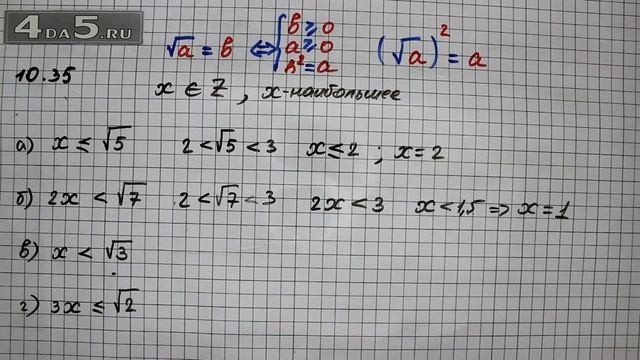 4DA5.RU
√a = b ⟺ { b ⩾ 0
a ⩾ 0
b² = a
(√a)² = a
10.35
x ∈ Z, x-наибольшее
а) x ≤ √5 2 < √5 < 3 x ≤ 2 ; x = 2
б) 2x < √7 2 < √7 < 3 2x < 3 x < 1,5 ⇒ x = 1
в) x < √3
г) 3x ≤ √2